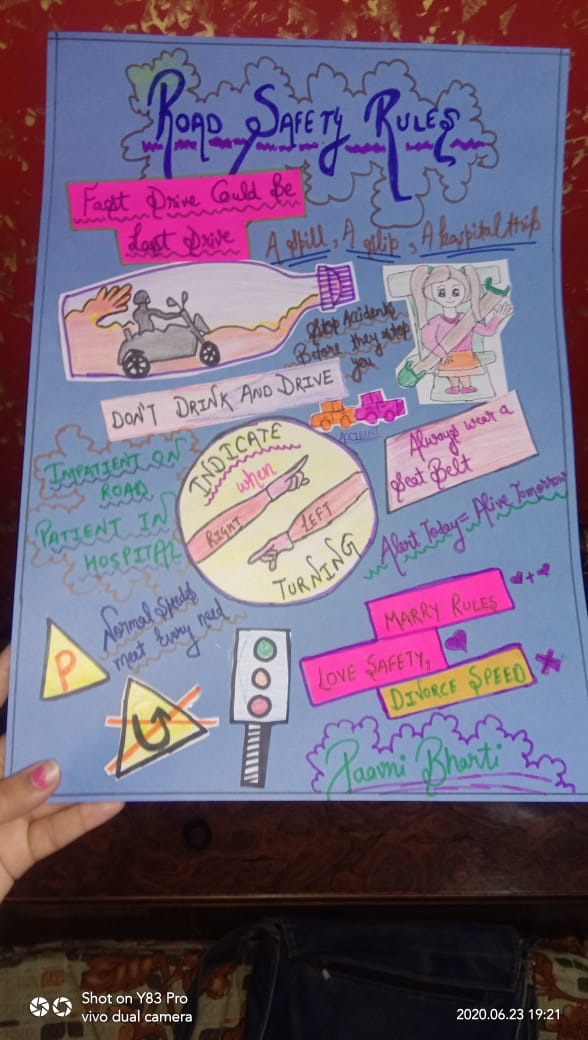 ROAD SAFETY RULES
Fast Drive Could Be
Last Drive
A Spill, A slip, A hospital trip
Stop Accidents
Before they stop
you
DON'T DRINK AND DRIVE
ACCIDENT
Always wear a
Seat Belt
IMPATIENT ON
ROAD
PATIENT IN
HOSPITAL
INDICATE
when
RIGHT
LEFT
TURNING
Alert Today = Alive Tomorrow
Normal Speeds
meet Every need
P
MARRY RULES
LOVE SAFETY,
DIVORCE SPEED
Paavni Bharti
Shot on Y83 Pro
vivo dual camera
2020.06.23 19:21